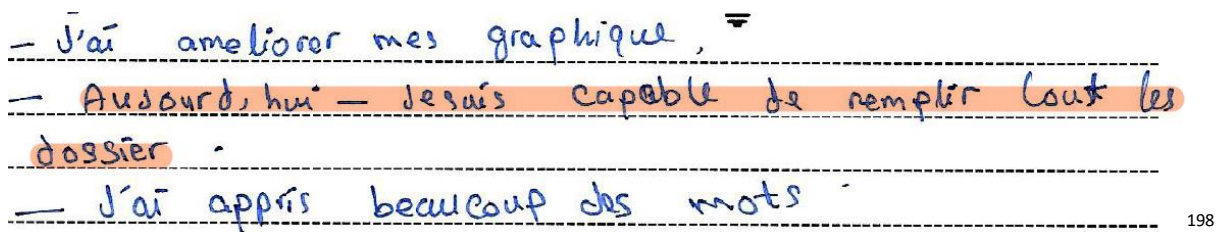 - J'ai ameliorer mes graphique,
- Aujourd, hui - Je suis capable de remplir tout les
dossier .
- J'ai appris beaucoup des mots
198